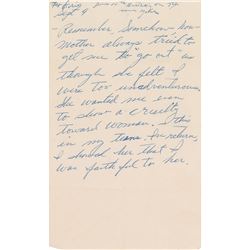 Sept 9
- Remember Somehow - how
Mother always tried to
get me to "go out" as
though she felt I
were too unadventurous,
she wanted me even
to show a cruelty
toward woman. This
in my teens. In return,
I showed her that I
was faithful to her.